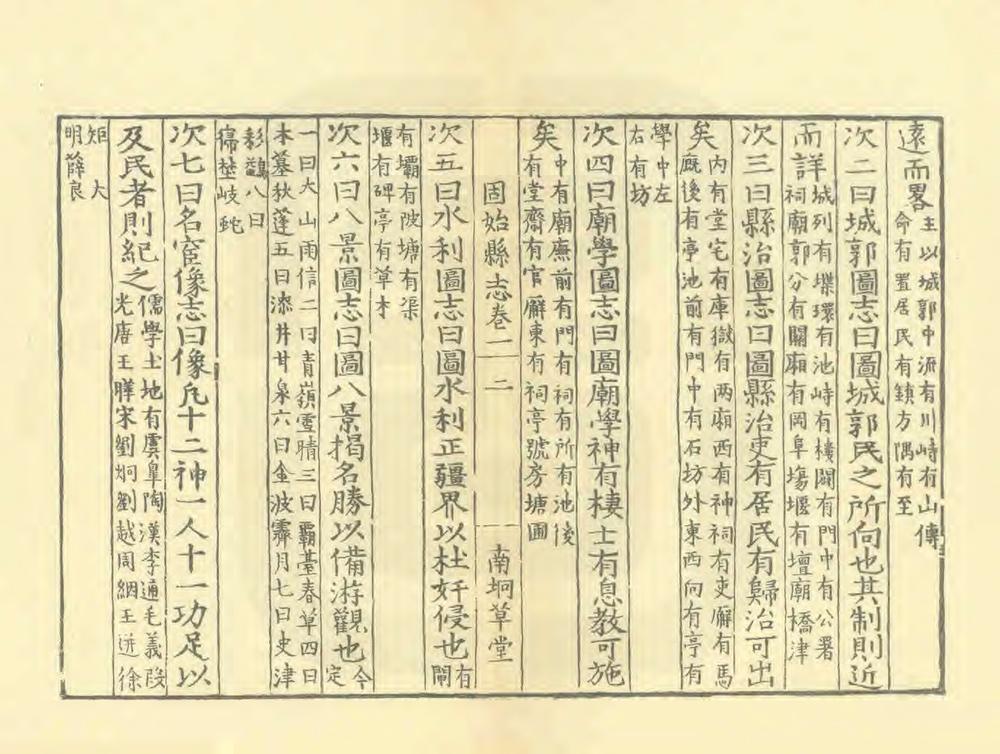 遠而畧
主以城郭中流有川峙有山傳
命有置居民有鎮方隅有至
次二曰城郭圖志曰圖城郭民之所向也其制則近
而詳
城列有堞環有池峙有樓闢有門中有公署
祠廟郭分有關廂有岡阜塲堰有壇廟橋津
次三曰縣治圖志曰圖縣治吏有居民有歸治可出
矣
内有堂宅有庫獄有两廂西有神祠有吏廨有馬
廐後有亭池前有門中有石坊外東西向有亭有
學中左
右有坊
次四曰廟學圖志曰圖廟學神有棲士有息教可施
矣
中有廟廡前有門有祠有所有池後
有堂齋有官廨東有祠亭號房塘圃
固始縣志卷一
二
南坰草堂
次五曰水利圖志曰圖水利正疆界以杜奸侵也
有
閘
有壩有陂塘有渠
堰有碑亭有草才
次六曰八景圖志曰圖八景揭名勝以備游觀也
今
定
一曰大山雨信二曰青嶺雪晴三曰覇臺春草四曰
本墓秋蓬五曰漆井甘泉六曰金波霽月七曰史津
彩鷁八曰
禱埜岐蛇
次七曰名宦像志曰像凡十二神一人十一功足以
及民者則紀之
儒學土地有虞皐陶漢李通毛義段
光唐王曄宋劉炯劉越周絪王迸徐
矩大
明薛良